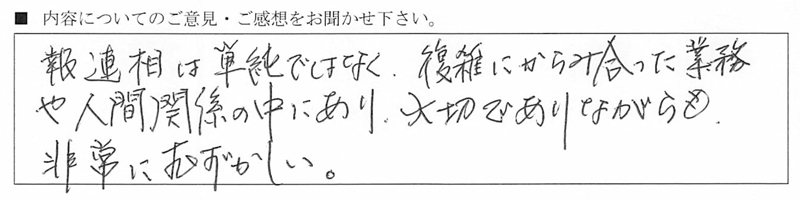 ■ 内容についてのご意見・ご感想をお聞かせ下さい。
報連相は単純ではなく、複雑にからみ合った業務
や人間関係の中にあり、大切でありながらも、
非常にむずかしい。